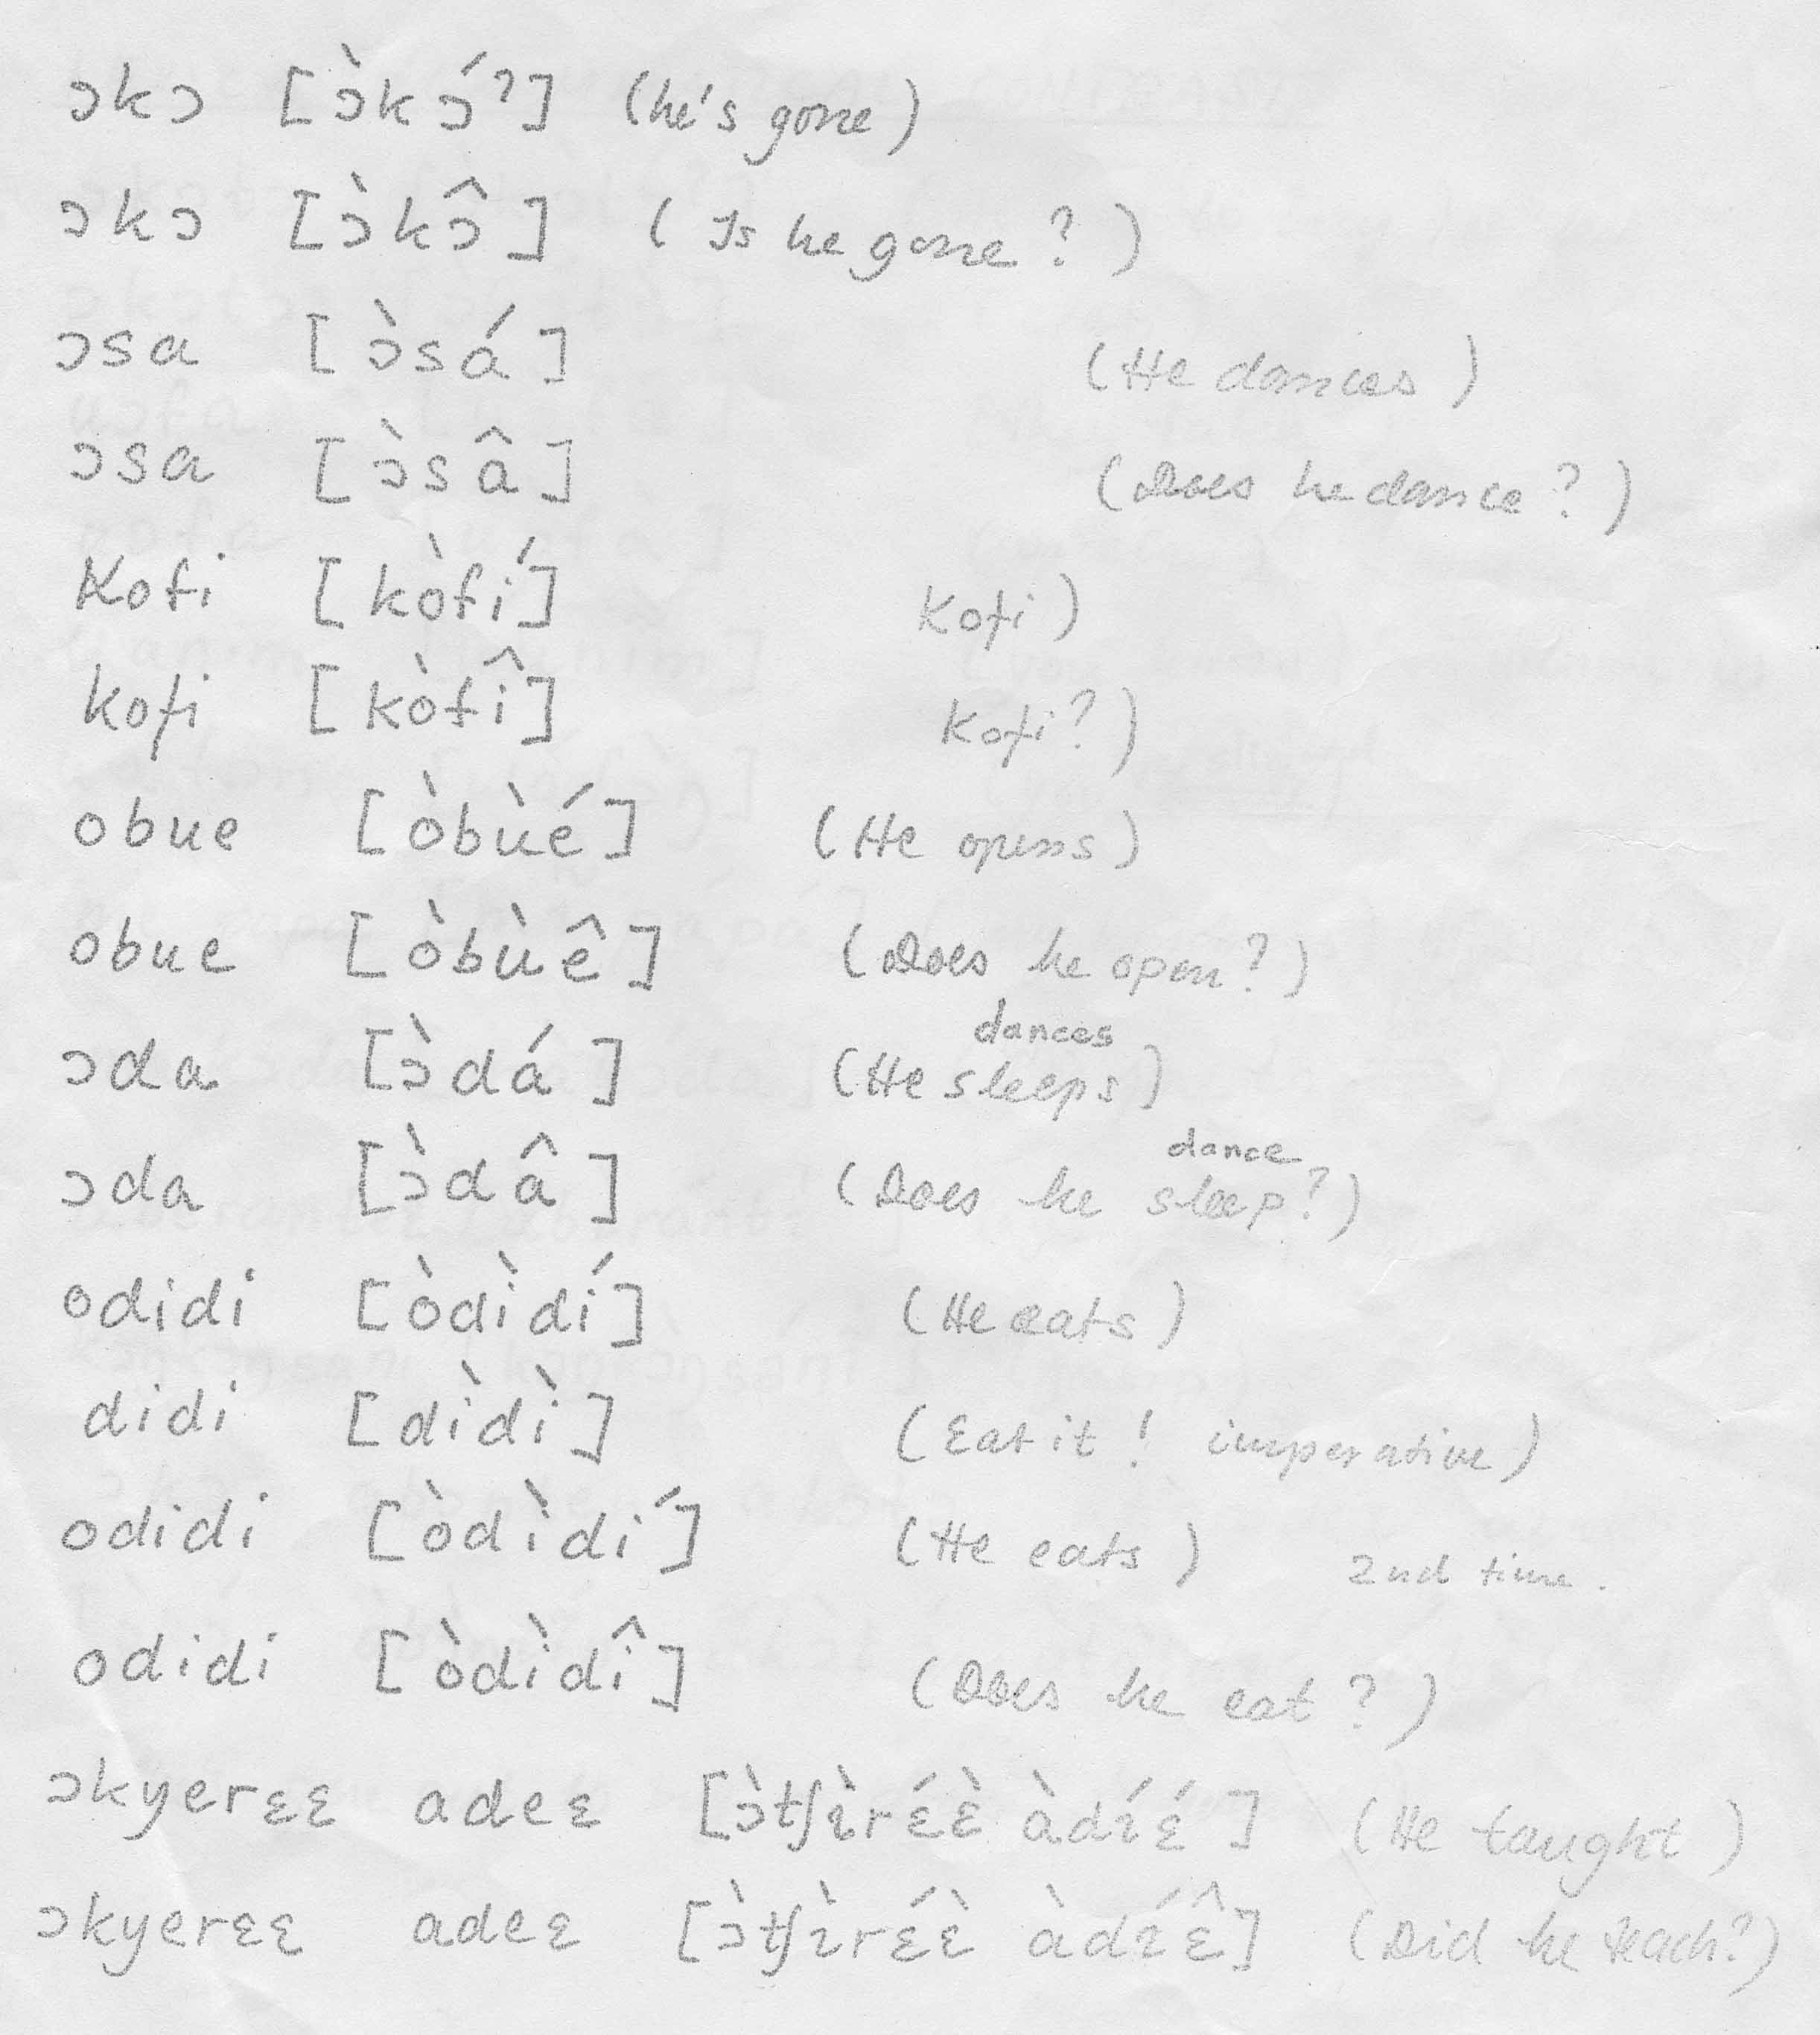 ɔkɔ [ɔ̀kɔ́ˀ] (he's gone)
ɔkɔ [ɔ̀kɔ̂] (Is he gone?)
ɔsa [ɔ̀sá] (He dances)
ɔsa [ɔ̀sâ] (Does he dance?)
Kofi [kòfí] Kofi)
kofi [kòfî] Kofi?)
obue [òbùé] (He opens)
obue [òbùê] (Does he open?)
dances
ɔda [ɔ̀dá] (He sleeps)
dance
ɔda [ɔ̀dâ] (Does he sleep?)
odidi [òdìdí] (He eats)
didi [dìdì] (Eat it! imperative)
odidi [òdìdí] (He eats) 2nd time.
odidi [òdìdî] (Does he eat?)
ɔkyerɛɛ adeɛ [ɔ̀tʃɪ̀rɛ́ɛ̀ àdɪ́ɛ́] (He taught)
ɔkyerɛɛ adeɛ [ɔ̀tʃɪ̀rɛ́ɛ̀ àdɪ́ɛ̂] (Did he teach?)